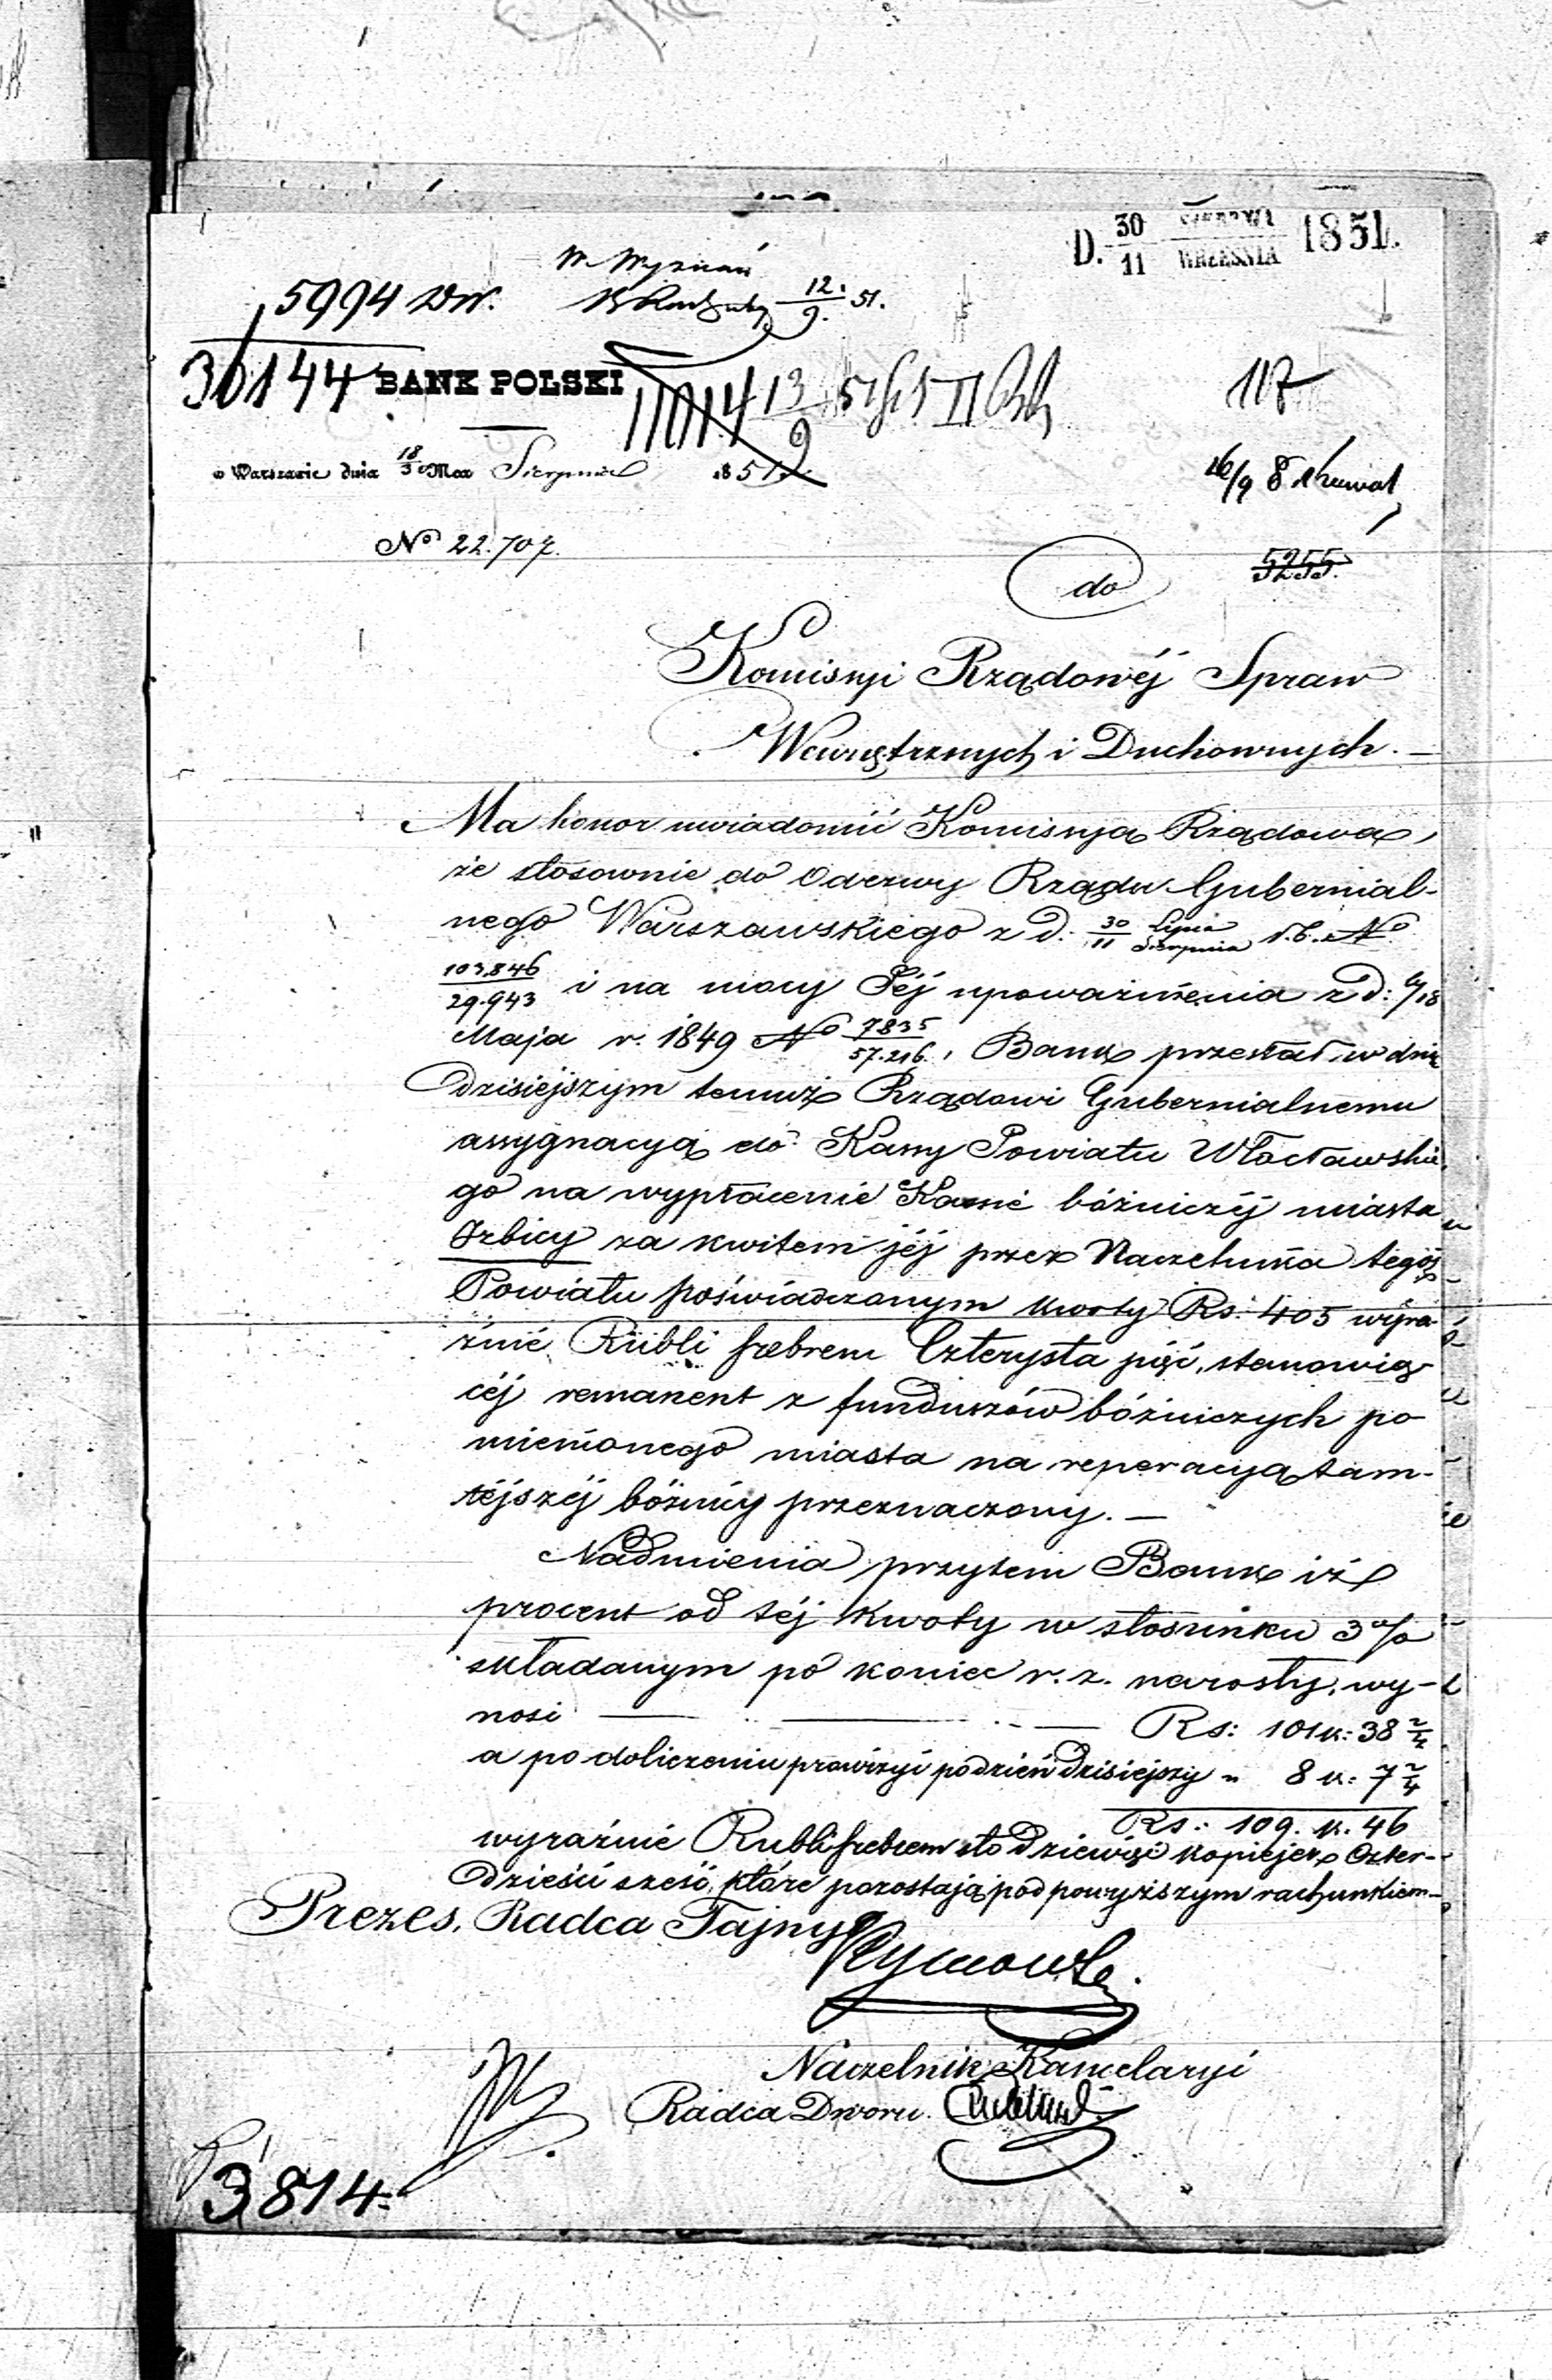 D. 30/11 SIERPNIA/WRZEŚNIA 1851.
W. Wyznań
5994 12./9. 51.
30144 BANK POLSKI 13/9 51 II
117
w Warszawie dnia 18/30 Sierpnia 1851
16/9 8
No 22.707.
5255.
do
Komisyi Rządowéj Spraw
Wewnętrznych i Duchownych. —
Ma honor uwiadomić Komisyą Rządową,
że stosownie do Odezwy Rządu Gubernial-
nego Warszawskiego z d. 30/11 Lipca/Sierpnia r.b. No
103.846/29.943 i na mocy Jéj upoważnienia z d: 6/18
Maja r. 1849 No 7835/57.216., Bank przesłał w dniu
dzisiejszym temuż Rządowi Gubernialnemu
assygnacyą do Kassy Powiatu Włocławskie-
go na wypłacenie Kassie bóżniczéj miasta
Izbicy za kwitem jéj przez Naczelnika tegoż
Powiatu poświadczonym kwoty Rs: 405 wyra-
źnie Rubli srebrem Czterysta pięć, stanowią-
céj remanent z funduszów bóżniczych po-
mienionego miasta na reperacyą tam-
téjszéj bóżnicy przeznaczony. —
Nadmienia przytem Bank iż
procent od téj kwoty w stosunku 3 %
składanym po koniec r. z. narosły, wy-
nosi — — — Rs: 101 k: 38 2/4
a po doliczeniu prowizyi po dzień dzisiejszy „ 8 k: 7 2/4
Rs: 109. k. 46
wyraźnie Rubli srebrem sto dziewięć kopiejek Czter-
dzieści sześć, które pozostają pod powyższym rachunkiem.
Prezes, Radca Tajny
Naczelnik Kancelaryi
Radca Dworu.
3814.